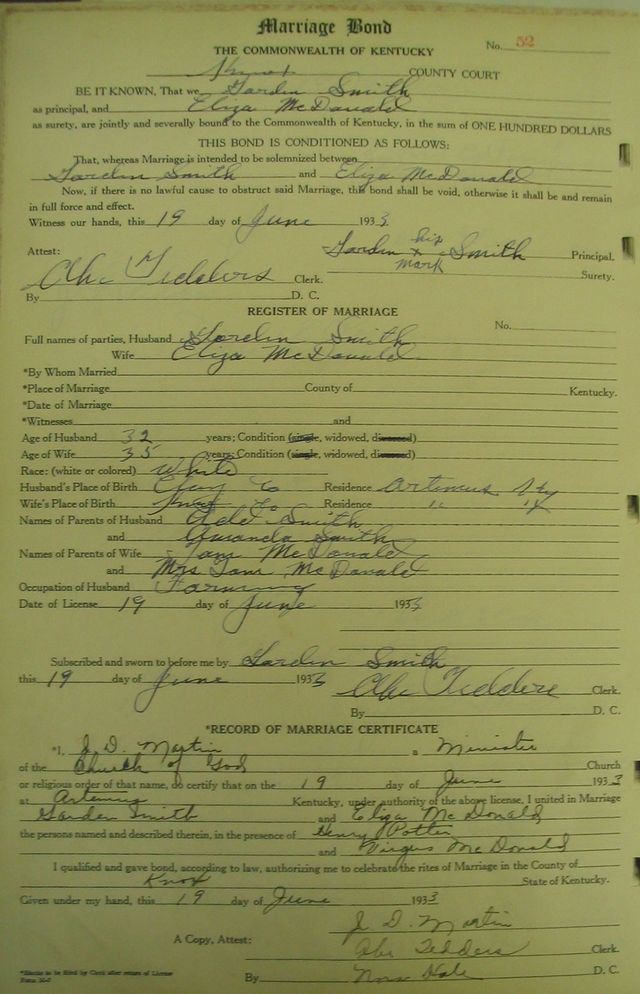 Marriage Bond
THE COMMONWEALTH OF KENTUCKY No. 52
Knox COUNTY COURT
BE IT KNOWN, That we Garden Smith
as principal, and Eliza McDanald
as surety, are jointly and severally bound to the Commonwealth of Kentucky, in the sum of ONE HUNDRED DOLLARS
THIS BOND IS CONDITIONED AS FOLLOWS:
That, whereas Marriage is intended to be solemnized between
Garden Smith and Eliza McDonald
Now, if there is no lawful cause to obstruct said Marriage, this bond shall be void, otherwise it shall be and remain
in full force and effect.
Witness our hands, this 19 day of June 1933
Attest: Garden his x mark Smith Principal.
Abe Tedders Clerk. Surety.
By D. C.
REGISTER OF MARRIAGE
No.
Full names of parties, Husband Garden Smith
Wife Eliza McDanald
*By Whom Married
*Place of Marriage County of Kentucky.
*Date of Marriage
*Witnesses and
Age of Husband 32 years; Condition (single, widowed, divorced)
Age of Wife 35 years; Condition (single, widowed, divorced)
Race: (white or colored) White
Husband's Place of Birth Clay Co Residence Artemus Ky
Wife's Place of Birth Knox Co Residence " "
Names of Parents of Husband Smith
and Amanda Smith
Names of Parents of Wife Tom McDonald
and Mrs Tom McDonald
Occupation of Husband Farming
Date of License 19 day of June 1933
Subscribed and sworn to before me by Garden Smith
this 19 day of June 1933
Abe Tedders Clerk.
By D. C.
*RECORD OF MARRIAGE CERTIFICATE
*I, J. D. Martin a Minister
of the Church of God Church
or religious order of that name, do certify that on the 19 day of June 1933
at Artemus Kentucky, under authority of the above license, I united in Marriage
Garden Smith and Eliza McDonald
the persons named and described therein, in the presence of Henry Potter
and Virges McDonald
I qualified and gave bond, according to law, authorizing me to celebrate the rites of Marriage in the County of
Knox State of Kentucky.
Given under my hand, this 19 day of June 1933
J. D. Martin
A Copy, Attest: Abe Tedders Clerk.
By Nora Hale D. C.
*Blanks to be filled by Clerk after return of License